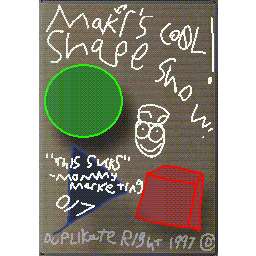 Maki's cool!
Shape show!
"This sucks"
-mommy
marketing
DUPLIKate Right 1997 ©